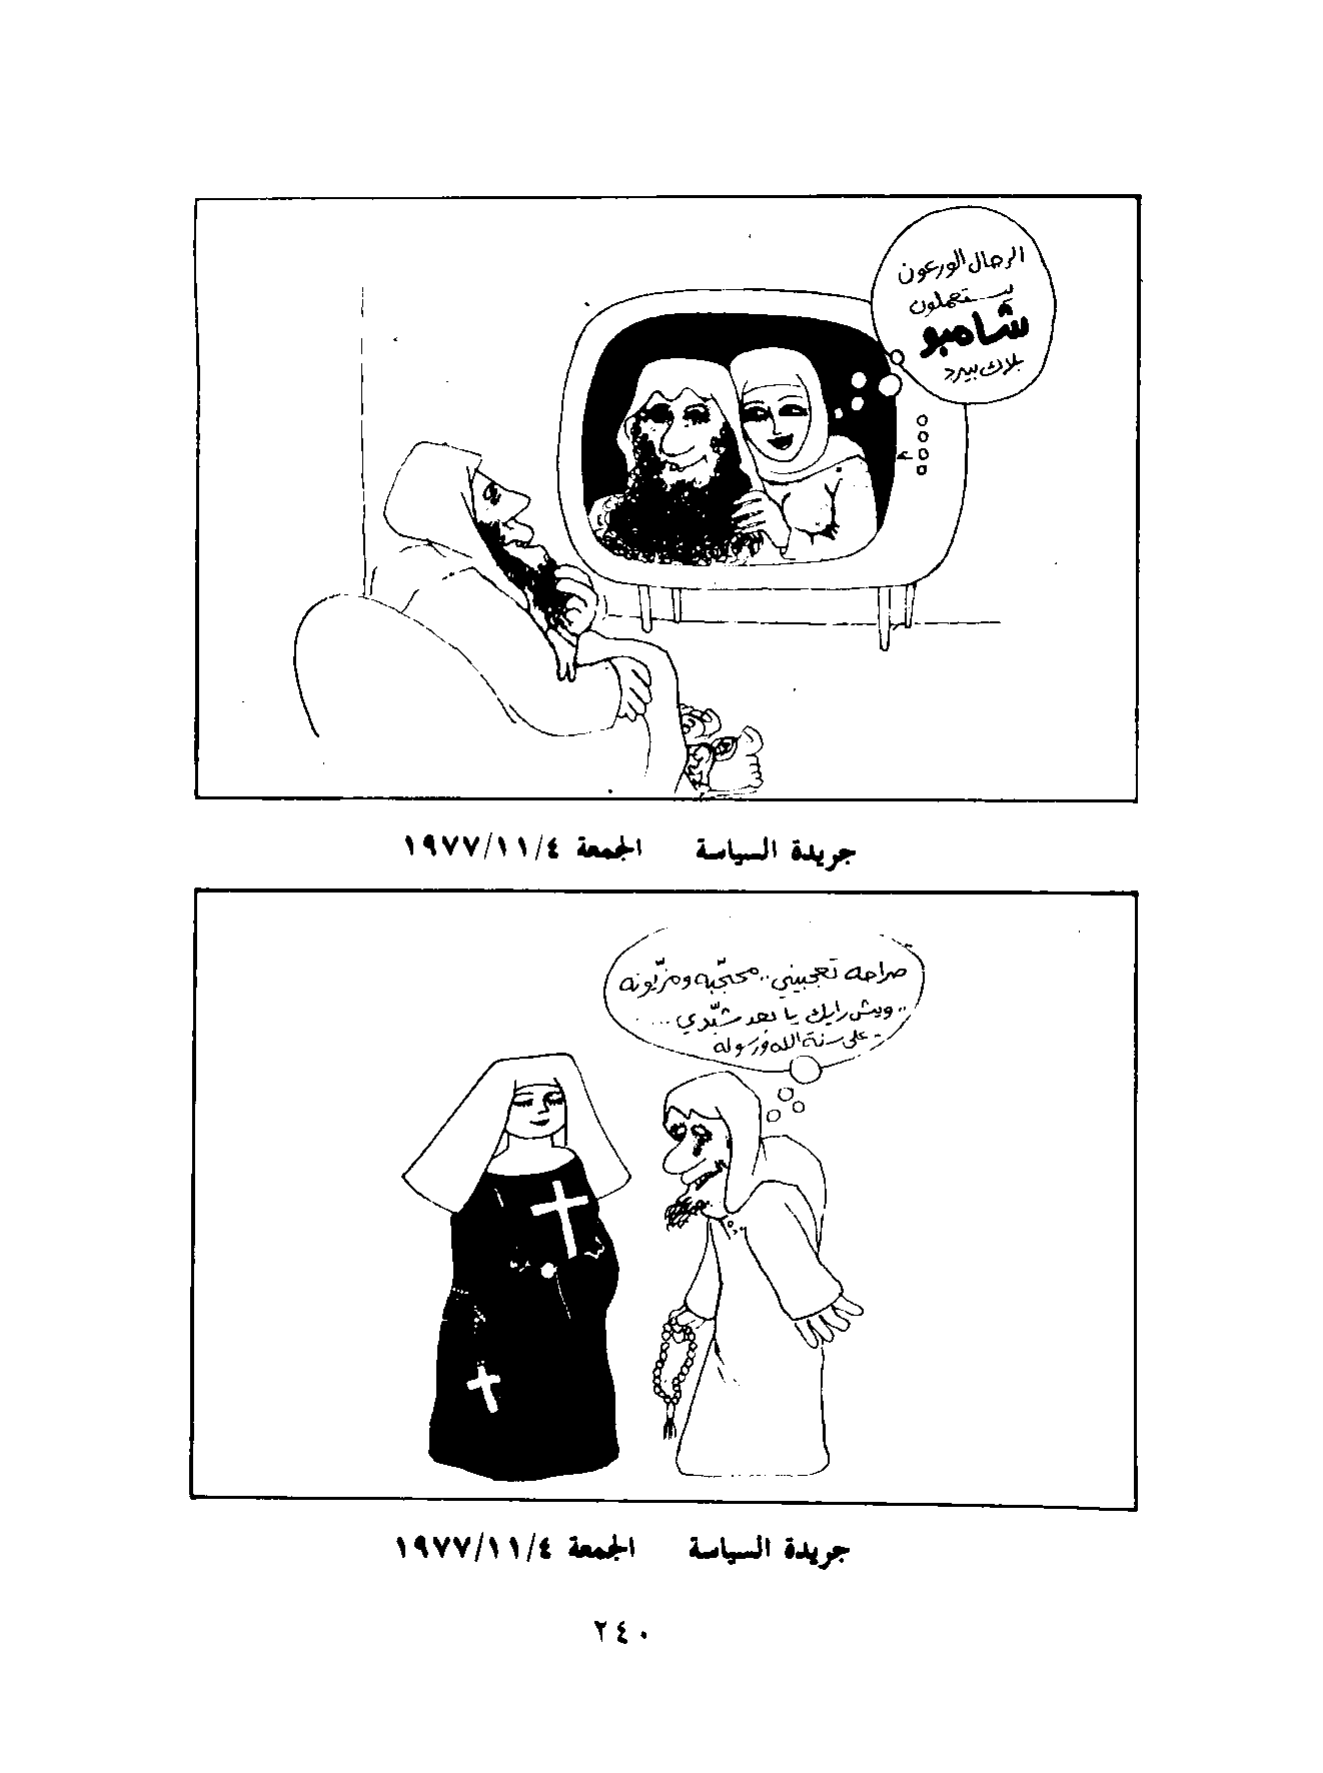 الرجال الورعون
يستعملون
شامبو
بلاك بيرد
جريدة السياسة الجمعة ١٩٧٧/١١/٤
صراحه تعجبيني.. محتجّبه ومزيونه
..ويش رايك يا بعد شبّدي...
على سنة الله ورسوله
جريدة السياسة الجمعة ١٩٧٧/١١/٤
٢٤٠